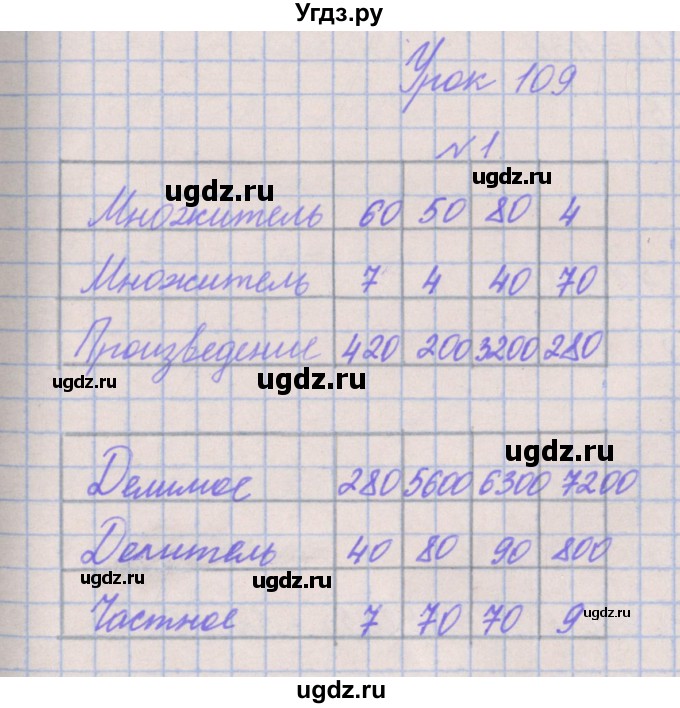 Угдз.ру
Урок 109
№1
Множитель 60 50 80 4
Множитель 7 4 40 70
Произведение 420 200 3200 280
Делимое 280 5600 6300 7200
Делитель 40 80 90 800
Частное 7 70 70 9
ugdz.ru
ugdz.ru
ugdz.ru
ugdz.ru
ugdz.ru
ugdz.ru
ugdz.ru
ugdz.ru
ugdz.ru